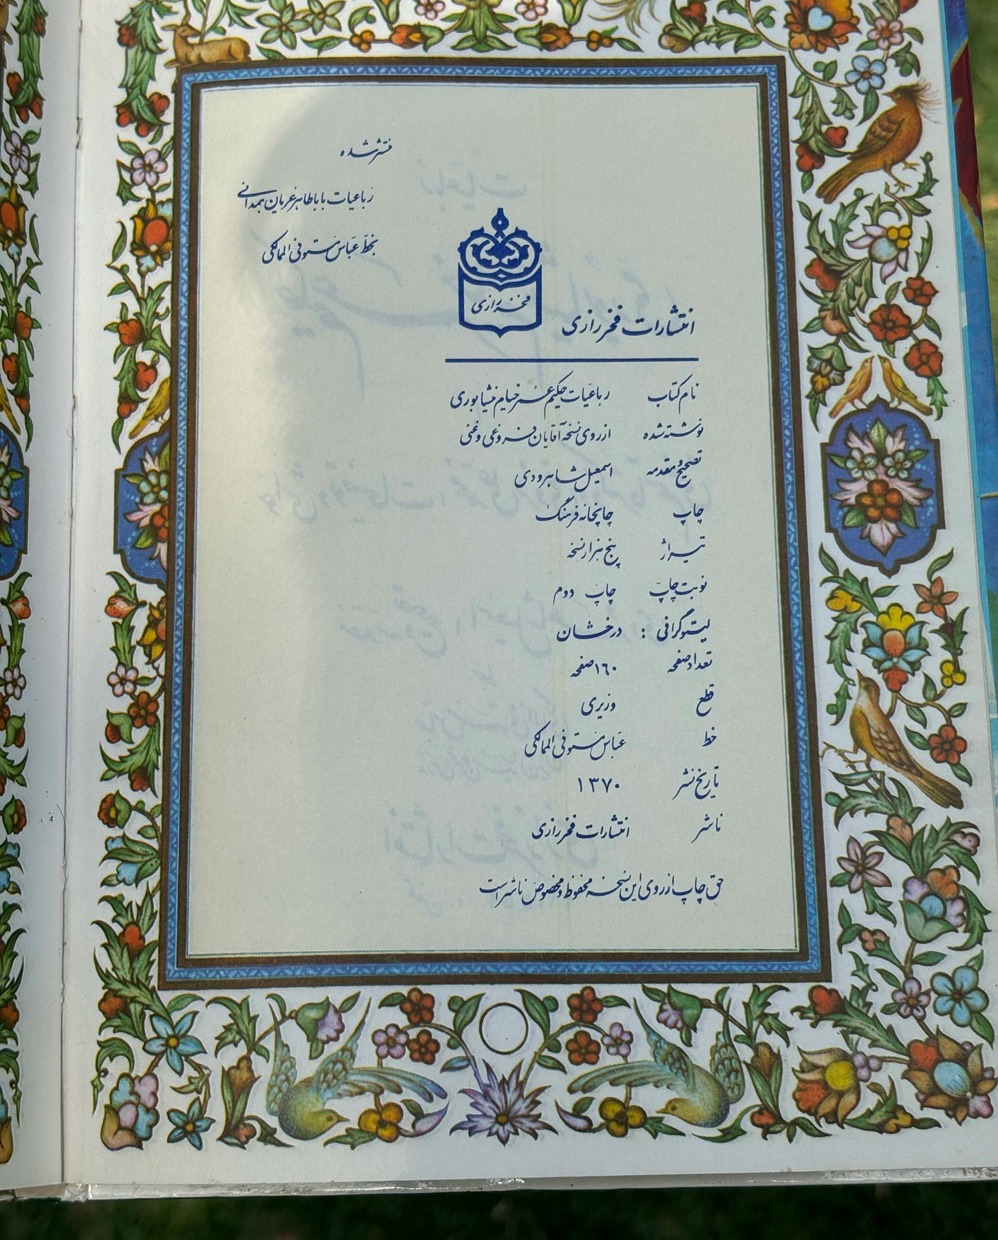 منتشر شده
رباعیات باباطاهر عریان همدانی
بخط عباس مستوفی الممالکی
فخر رازی
انتشارات فخر رازی
نام کتاب رباعیات حکیم عمر خیام نیشابوری
نوشته شده از روی نسخه آقایان فروغی و غنی
تصحیح و مقدمه اسمعیل شاهرودی
چاپ چاپخانه فرهنگ
تیراژ پنج هزار نسخه
نوبت چاپ چاپ دوم
لیتوگرافی : درخشان
تعداد صفحه ۱۶۰ صفحه
قطع وزیری
خط عباس مستوفی الممالکی
تاریخ نشر ۱۳۷۰
ناشر انتشارات فخر رازی
حق چاپ از روی این نسخه محفوظ و مخصوص ناشر است